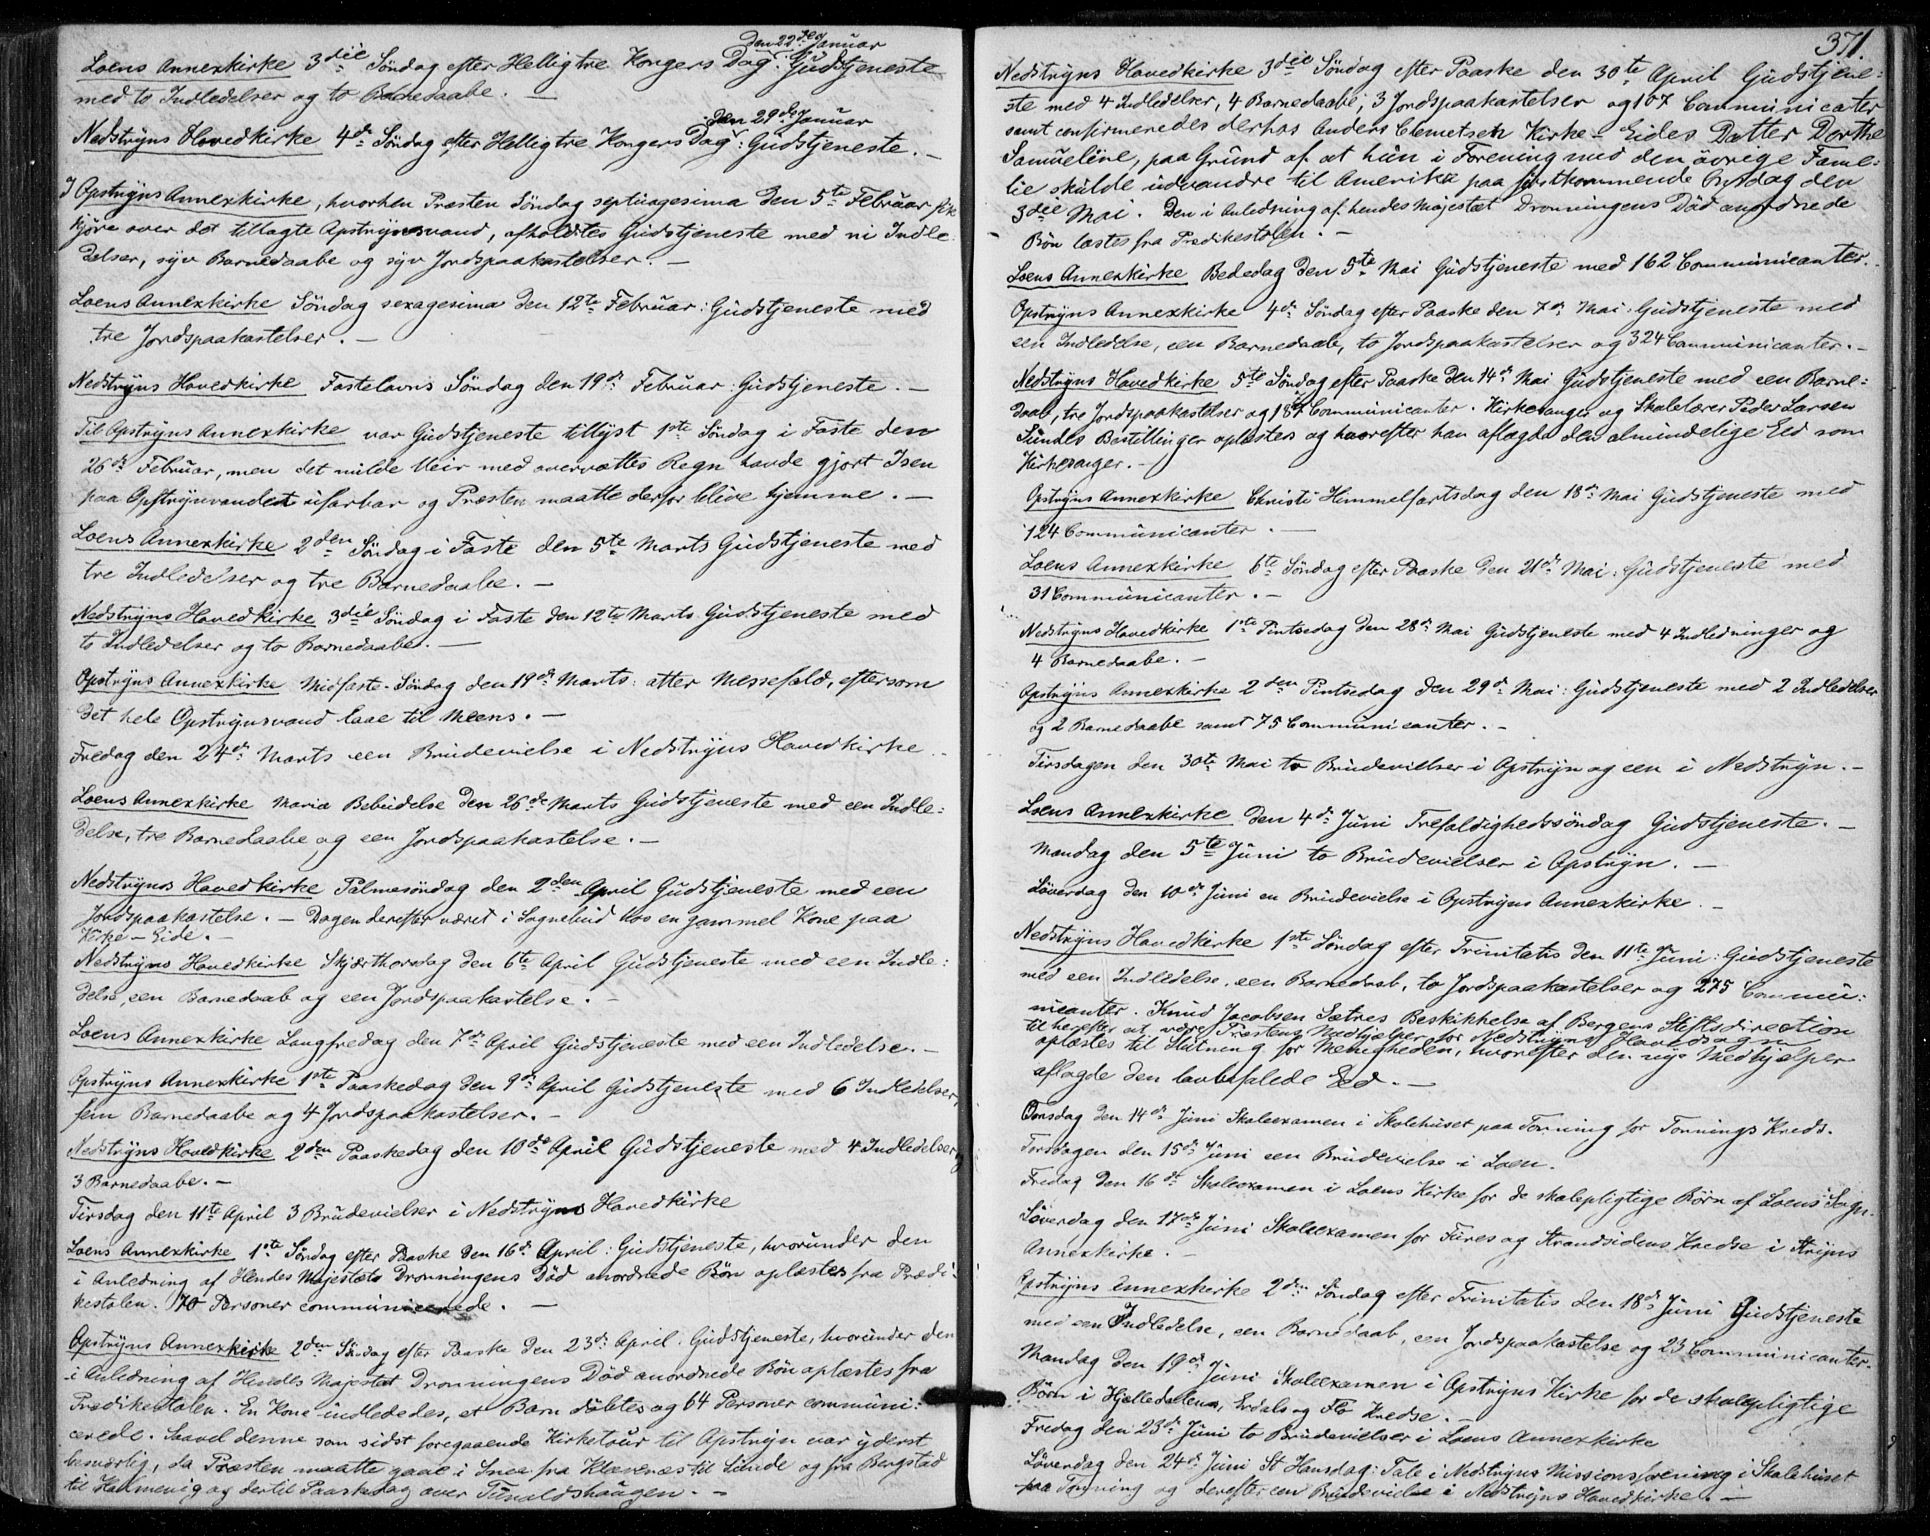 den 22de Januar
Loens Annexkirke 3die Søndag efter Helligtre Kongers Dag: Gudstjeneste
med to Indledelser og to Barnedaabe. —
den 29de Januar
Nedstryns Hovedkirke 4de Søndag efter Helligtre Kongers Dag: Gudstjeneste. —
I Opstryns Annexkirke, hvorhen Præsten Søndag septuagesima den 5te Februar fik
kjøre over det tillagte Opstrynsvand, afholdtes Gudstjeneste med ni Indle-
delser, syv Barnedaabe og syv Jordspaakastelser. —
Loens Annexkirke Søndag sexagesima den 12te Februar: Gudstjeneste med
tre Jordspaakastelser. —
Nedstryns Hovedkirke Fastelavns Søndag den 19de Februar: Gudstjeneste. —
Til Opstryns Annexkirke var Gudstjeneste tillyst 1ste Søndag i Faste den
26de Februar, men det milde Veir med overvættes Regn havde gjort Isen
paa Opstrynsvandet ufarbar og Præsten maatte derfor blive hjemme. —
Loens Annexkirke 2den Søndag i Faste den 5te Marts Gudstjeneste med
tre Indledelser og tre Barnedaabe. —
Nedstryns Hovedkirke 3die Søndag i Faste den 12te Marts Gudstjeneste med
to Indledelser og to Barnedaabe. —
Opstryns Annexkirke Midfaste-Søndag den 19de Marts: atter Messefald, eftersom
det hele Opstrynsvand laae til Meens. —
Fredag den 24de Marts een Brudevielse i Nedstryns Hovedkirke
Loens Annexkirke Maria Bebudelse den 26de Marts Gudstjeneste med een Indle:
delse, tre Barnedaabe og een Jordspaakastelse. —
Nedstryns Hovedkirke Palmesøndag den 2den April Gudstjeneste med een
Jordspaakastelse. — Dagen derefter været i Sognebud hos en gammel Kone paa
Kirke-Eide. —
Nedstryns Hovedkirke Skjærthorsdag den 6te April Gudstjeneste med een Indle:
delse, een Barnedaab og een Jordspaakastelse. —
Loens Annexkirke Langfredag den 7de April Gudstjeneste med een Indledelse. —
Opstryns Annexkirke 1ste Paaskedag den 9de April Gudstjeneste med 6 Indledelser,
fem Barnedaabe og 4 Jordspaakastelser. —
Nedstryns Hovedkirke 2den Paaskedag den 10de April Gudstjeneste med 4 Indledelser og
3 Barnedaabe. —
Tirsdag den 11te April 3 Brudevielser i Nedstryns Hovedkirke
Loens Annexkirke 1ste Søndag efter Paaske den 16de April: Gudstjeneste, hvorunder den
i Anledning af Hendes Majestæts Dronningens Død anordnede Bøn oplæstes fra Prædi-
kestolen. 70 Personer communicerede. —
Opstryns Annexkirke 2den Søndag efter Paaske den 23de April: Gudstjeneste, hvorunder den
i Anledning af Hendes Majestæt Dronningens Død anordnede Bøn oplæstes fra
Prædikestolen. En Kone indlededes, et Barn døbtes og 64 Personer communi:
cerede. Saavel denne som sidst foregaaende Kirketour til Opstryn var yderst
besværlig, da Præsten maatte gaae i Snee fra Klævenæs til Sunde og fra Bergstad
til Hammervig og dertil Paaskedag over Tunoldshaugen. —
371.
Nedstryns Hovedkirke 3die Søndag efter Paaske den 30te April Gudstjene:
ste med 4 Indledelser, 4 Barnedaabe, 3 Jordspaakastelser og 107 Communicanter
samt confirmeredes derhos Anders Clemetsen Kirke-Eides Datter Dorthe
Samueline, paa Grund af at hun i Forening med den øvrige Fami:
lie skulde udvandre til Amerika paa førstkommende Onsdag den
3die Mai. Den i Anledning af hendes Majestæt Dronningens Død anordnede
Bøn læstes fra Prædikestolen. —
Loens Annexkirke Bededag den 5te Mai Gudstjeneste med 162 Communicanter.
Opstryns Annexkirke 4de Søndag efter Paaske den 7de Mai: Gudstjeneste med
een Indledelse, een Barnedaab, to Jordspaakastelser og 324 Communicanter. —
Nedstryns Hovedkirke 5te Søndag efter Paaske den 14de Mai Gudstjeneste med een Barne:
daab, tre Jordspaakastelser og 187 Communicanter. Kirkesanger og Skolelærer Peder Larsen
Sundes Bestillinger oplæstes og hvorefter han aflagde den almindelige Eed som
Kirkesanger. —
Opstryns Annexkirke Christi Himmelfartsdag den 18de Mai Gudstjeneste med
124 Communicanter. —
Loens Annexkirke 6te Søndag efter Paaske den 21de Mai: Gudstjeneste med
31 Communicanter. —
Nedstryns Hovedkirke 1ste Pintsedag den 28de Mai Gudstjeneste med 4 Indledninger og
4 Barnedaabe. —
Opstryns Annexkirke 2den Pintsedag den 29de Mai: Gudstjeneste med 2 Indledelser
og 2 Barnedaabe samt 75 Communicanter. —
Tirsdagen den 30te Mai to Brudevielser i Opstryn og een i Nedstryn. —
Loens Annexkirke den 4de Juni Trefoldighedssøndag Gudstjeneste. —
Mandag den 5te Juni to Brudevielser i Opstryn. —
Løverdag den 10de Juni en Brudevielse i Opstryns Annexkirke. —
Nedstryns Hovedkirke 1ste Søndag efter Trinitatis den 11te Juni: Gudstjeneste
med een Indledelse, een Barnedaab, to Jordspaakastelser og 275 Commu:
nicanter. Knud Jacobsen Sætres Beskikkelse af Bergens Stiftsdirection
til herefter at være Præstens Medhjælper for Nedstryns Hovedsogn
oplæstes til Slutning for Menigheden, hvorefter den nye Medhjælper
aflagde den lovbefalede Eed. —
Onsdag den 14de Juni Skoleexamen i Skolehuset paa Tonning for Tonnings Kreds.
Torsdagen den 15de Juni een Brudevielse i Loen.
Fredag den 16de Skoleexamen i Loens Kirke for de skolepligtige Børn af Loens Sogn.
Løverdag den 17de Juni Skoleexamen for Fures og Strandsidens Kredse i Stryns
Annexkirke. —
Opstryns Annexkirke 2den Søndag efter Trinitatis den 18de Juni Gudstjeneste
med een Indledelse, een Barnedaab, een Jordspaakastelse og 23 Communicanter.
Mandag den 19de Juni Skoleexamen i Opstryns Kirke for de skolepligtige
Børn i Hjelledalens, Erdals og Flo Kredse. —
Fredag den 23de Juni to Brudevielser i Loens Annexkirke
Løverdag den 24de Juni St Hansdag: Tale i Nedstryns Missionsforening i Skolehuset
paa Tonning og derefter een Brudevielse i Nedstryns Hovedkirke. —